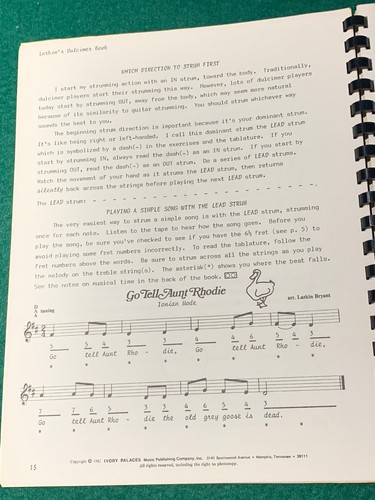 Larkin's Dulcimer Book
WHICH DIRECTION TO STRUM FIRST
I start my strumming action with an IN strum, toward the body. Traditionally,
dulcimer players start their strumming this way. However, lots of dulcimer players
today start by strumming OUT, away from the body, which may seem more natural
because of its similarity to guitar strumming. You should strum whichever way
sounds the best to you.
The beginning strum direction is important because it's your dominant strum.
It's like being right or left-handed. I call this dominant strum the LEAD strum
which is symbolized by a dash(-) in the exercises and the tablature. If you
start by strumming IN, always read the dash(-) as an IN strum. If you start by
strumming OUT, read the dash(-) as an OUT strum. Do a series of LEAD strums.
Watch the movement of your hand as it strums the LEAD strum, then returns
silently back across the strings before playing the next LEAD strum.
The LEAD strum: - - - - - - - - - - - - - - - - - - - -
PLAYING A SIMPLE SONG WITH THE LEAD STRUM
The very easiest way to strum a simple song is with the LEAD strum, strumming
once for each note. Listen to the tape to hear how the song goes. Before you
play the song, be sure you've checked to see if you have the 6½ fret (see p. 5) to
avoid playing some fret numbers incorrectly. To read the tablature, follow the
fret numbers above the words. Be sure to strum across all the strings as you play
the melody on the treble string(s). The asterisk(*) shows you where the beat falls.
See the notes on musical time in the back of the book.
Go Tell Aunt Rhodie
Ionian Mode
arr. Larkin Bryant
D
A tuning
A
5 5 4 3 3 4 4 6 5 4 3
Go tell Aunt Rho - die, Go tell Aunt Rho - die,
* * * * * * * *
7 7 6 5 3 3 4 5 4 3
Go tell Aunt Rho - die the old grey goose is dead.
* * * * * * * *
15
Copyright © 1982 IVORY PALACES Music Publishing Company, Inc. 3141 Spottswood Avenue • Memphis, Tennessee • 38111
All rights reserved, including the right to photocopy.